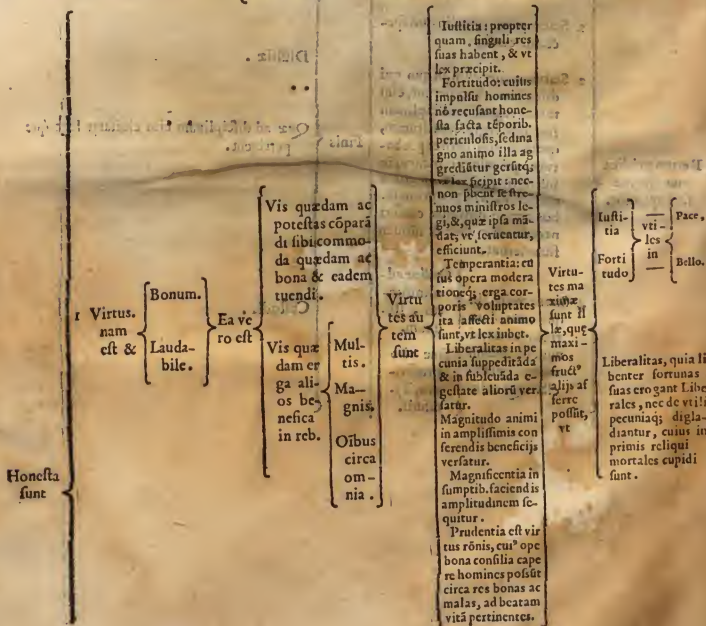 Honesta
sunt
1 Virtus.
nam
est &
Bonum.
Lauda-
bile.
Ea ve
ro est
Vis quædam ac
potestas cōparā
di sibi commo-
da quædam ac
bona & eadem
tuendi.
Vis quæ
dam er
ga ali-
os be-
nefica
in reb.
Mul-
tis.
Ma-
gnis.
Oībus
circa
om-
nia.
Virtu
tes au
tem
sunt
Iustitia: propter
quam, singuli res
suas habent, & vt
lex præcipit.
Fortitudo: cuius
impulsu homines
nō recusant hone-
sta facta tēporib.
periculosis, sed ma
gno animo illa ag
grediūtur gerūtq;
vt lex precipit: nec-
non præbent se stre-
nuos ministros le-
gi, &, quæ ipsa mā-
dat, vt seruentur,
efficiunt.
Temperantia: cu
ius opera modera
tioneq; erga cor-
poris voluptates
ita affecti animo
sunt, vt lex iubet.
Liberalitas in pe
cunia suppeditāda
& in subleuāda e-
gestate aliorū ver
satur.
Magnitudo animi
in amplissimis con
ferendis beneficijs
versatur.
Magnificentia in
sumptib. faciendis
amplitudinem se-
quitur.
Prudentia est vir
tus rōnis, cui⁹ ope
bona consilia cape
re homines possūt
circa res bonas ac
malas, ad beatam
vitā pertinentes.
Virtu-
tes ma
ximæ
sunt il
læ, quę
maxi-
mos
fruct⁹
alijs af
ferre
possūt,
vt
Iusti-
tia
Forti
tudo
vti-
les
in
Pace,
Bello.
Liberalitas, quia li
benter fortunas
suas erogant Libe
rales, nec de vtili
pecuniaq; digla-
diantur, cuius in
primis reliqui
mortales cupidi
sunt.